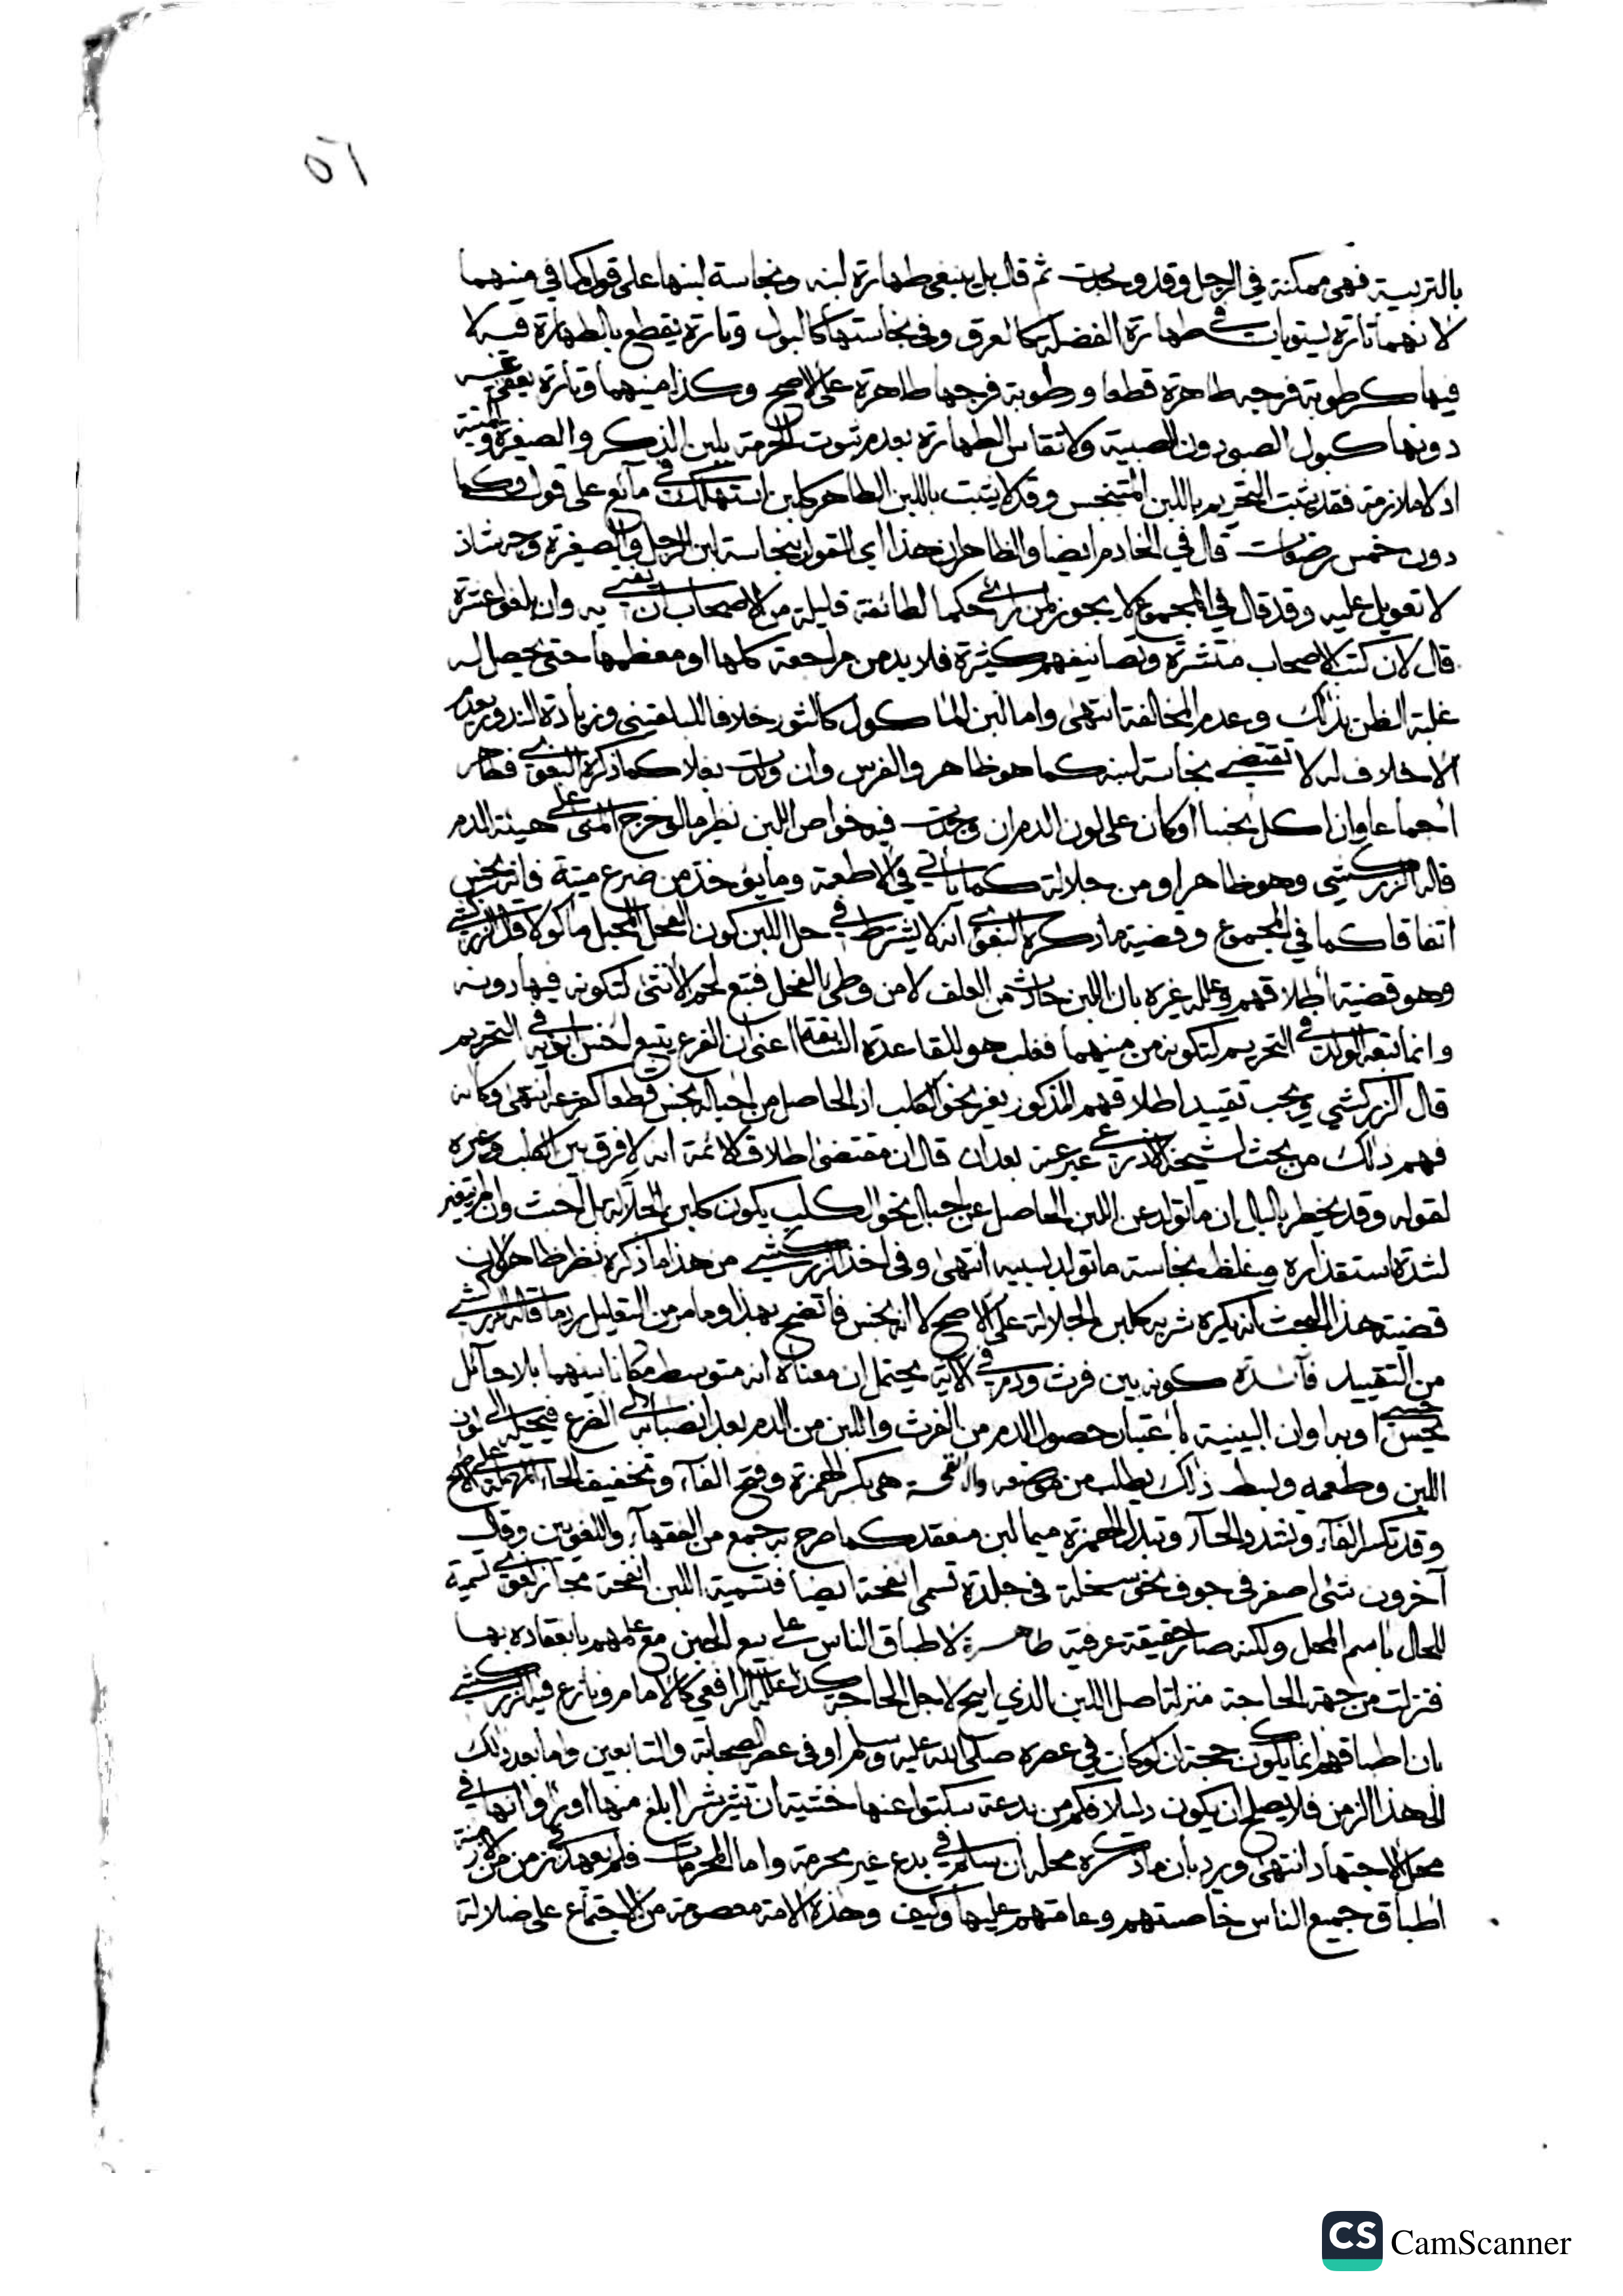 ٥١
بالتربية فهي ممكنة في الرجل وقد وجدت ثم قال بل ينبغي طهارة لبنه ونجاسة لبنها على قول كما في منيهما
لانهما تارة يستويان في طهارة الفضلة كالعرق وفي نجاستها كالبول وتارة يقطع بالطهارة فيه لا
فيها كرطوبة فرجه طاهرة قطعا ورطوبة فرجها طاهرة على الاصح وكذا منيهما وتارة يعفى عنه
دونها كبول الصبي دون الصبية ولا تقاس الطهارة بعدم ثبوت الحرمة بلبن الذكر والصغيرة والميتة
اذ لا ملازمة فقد يثبت التحريم باللبن المتنجس وقد لا يثبت باللبن الطاهر كلبن استهلك في مائع على قول وكما
دون خمس رضعات قال في الخادم ايضا والظاهر ان هذا اي القول بنجاسة لبن الرجل والصغيرة وجه شاذ
لا تعويل عليه وقد قال في المجموع لا يجوز لمن راى حكما لطائفة قليلة من الاصحاب ان يفتي به وان بلغوا عشرة
قال لان كتب الاصحاب منتشرة وتصانيفهم كثيرة فلا بد من مراجعة كلها او معظمها حتى يحصل له
غلبة الظن بذلك وعدم المخالفة انتهى واما لبن الماكول كالثور خلافا للبلقيني وزيادة الندور بعدم
الاخلاف له لا تقتضي نجاسة لبنه كما هو ظاهر والفرس وان ولدت بغلا كما ذكره البغوي فطاهر
اجماعا وان اكل نجسا او كان على لون الدم ان وجدت فيه خواص اللبن نظير ما لو خرج المني على هيئة الدم
قاله الزركشي وهو ظاهر او من جلالة كما ياتي في الاطعمة وما يؤخذ من ضرع ميتة فانه نجس
اتفاقا كما في المجموع وقضية ما ذكره البغوي انه لا يشترط في حل اللبن كون الفحل المحبل ماكولا قال الزركشي
وهو قضية اطلاقهم وعلله غيره بان اللبن حادث من العلف لا من وطي الفحل فتبع لحم الانثى لتكونه فيها دونه
وانما تبعه الولد في التحريم لتكونه من منيهما فغلب هو للقاعدة السابقة اعني ان الفرع يتبع اخس ابويه في التحريم
قال الزركشي ويجب تقييد اطلاقهم المذكور بغير نحو الكلب اذ الحاصل من احباله نجس قطعا كفرعه انتهى وكانه
فهم ذلك من بحث لشيخه الاذرعي عبر عنه بعد ان قال ان مقتضى اطلاق الائمة انه لا فرق بين الكلب وغيره
لقوله وقد يخطر بالبال ان ما تولد عن اللبن الحاصل عن احبال نحو الكلب يكون كلبن الجلالة بل اخبث وان لم يتغير
لشدة استقذاره وغلظ نجاسة ما تولد بسببه انتهى وفي اخذ الزركشي من هذا ما ذكره نظر ظاهر لان
قضية هذا البحث انه يكره شربه كلبن الجلالة على الاصح لا انه نجس فاتضح بهذا وما مر من التعليل رد ما قاله الزركشي
من التقييد فائدة كونه بين فرث ودم في الاية يحتمل ان معناه انه متوسط مكانا بينهما بلا حائل
حسي او به او ان البينية باعتبار حصول الدم من الفرث واللبن من الدم بعد انصبابه الى الضرع فيحيله الى لون
اللبن وطعمه وبسط ذلك يطلب من موضعه والانفحة هي بكسر الهمزة وفتح الفاء وتخفيف الحاء المهملة على الاصح
وقد تكسر الفاء وتشدد الحاء وتبدل الهمزة ميما لبن منعقد كما صرح به جمع من الفقهاء واللغويين وقال
آخرون شئ اصفر في جوف نحو سخلة في جلدة تسمى انفحة ايضا فتسمية اللبن انفحة مجاز لغوي تسمية
للحال باسم المحل ولكنه صار حقيقة عرفية طاهرة لاطباق الناس على بيع الجبن مع علمهم بانعقاده بها
فنزلت من جهة الحاجة منزلة اصل اللبن الذي ابيح لاجل الحاجة كذا علله الرافعي كالامام ونازع فيه الزركشي
بان اطباقهم انما يكون حجة ان لو كان في عصره صلى الله عليه وسلم او في عصر الصحابة والتابعين واما بعد ذلك
الى هذا الزمن فلا يصلح ان يكون دليلا فكم من بدعة سكتوا عنها خشية ان تثير شرا ابلغ منها او راوا انها في
محل الاجتهاد انتهى ويرد بان ما ذكره محله ان سلم في بدع غير محرمة واما المحرمات فلم يعهد في زمن من الازمنة
اطباق جميع الناس خاصتهم وعامتهم عليها وكيف وهذه الامة معصومة من الاجتماع على ضلالة
CS CamScanner